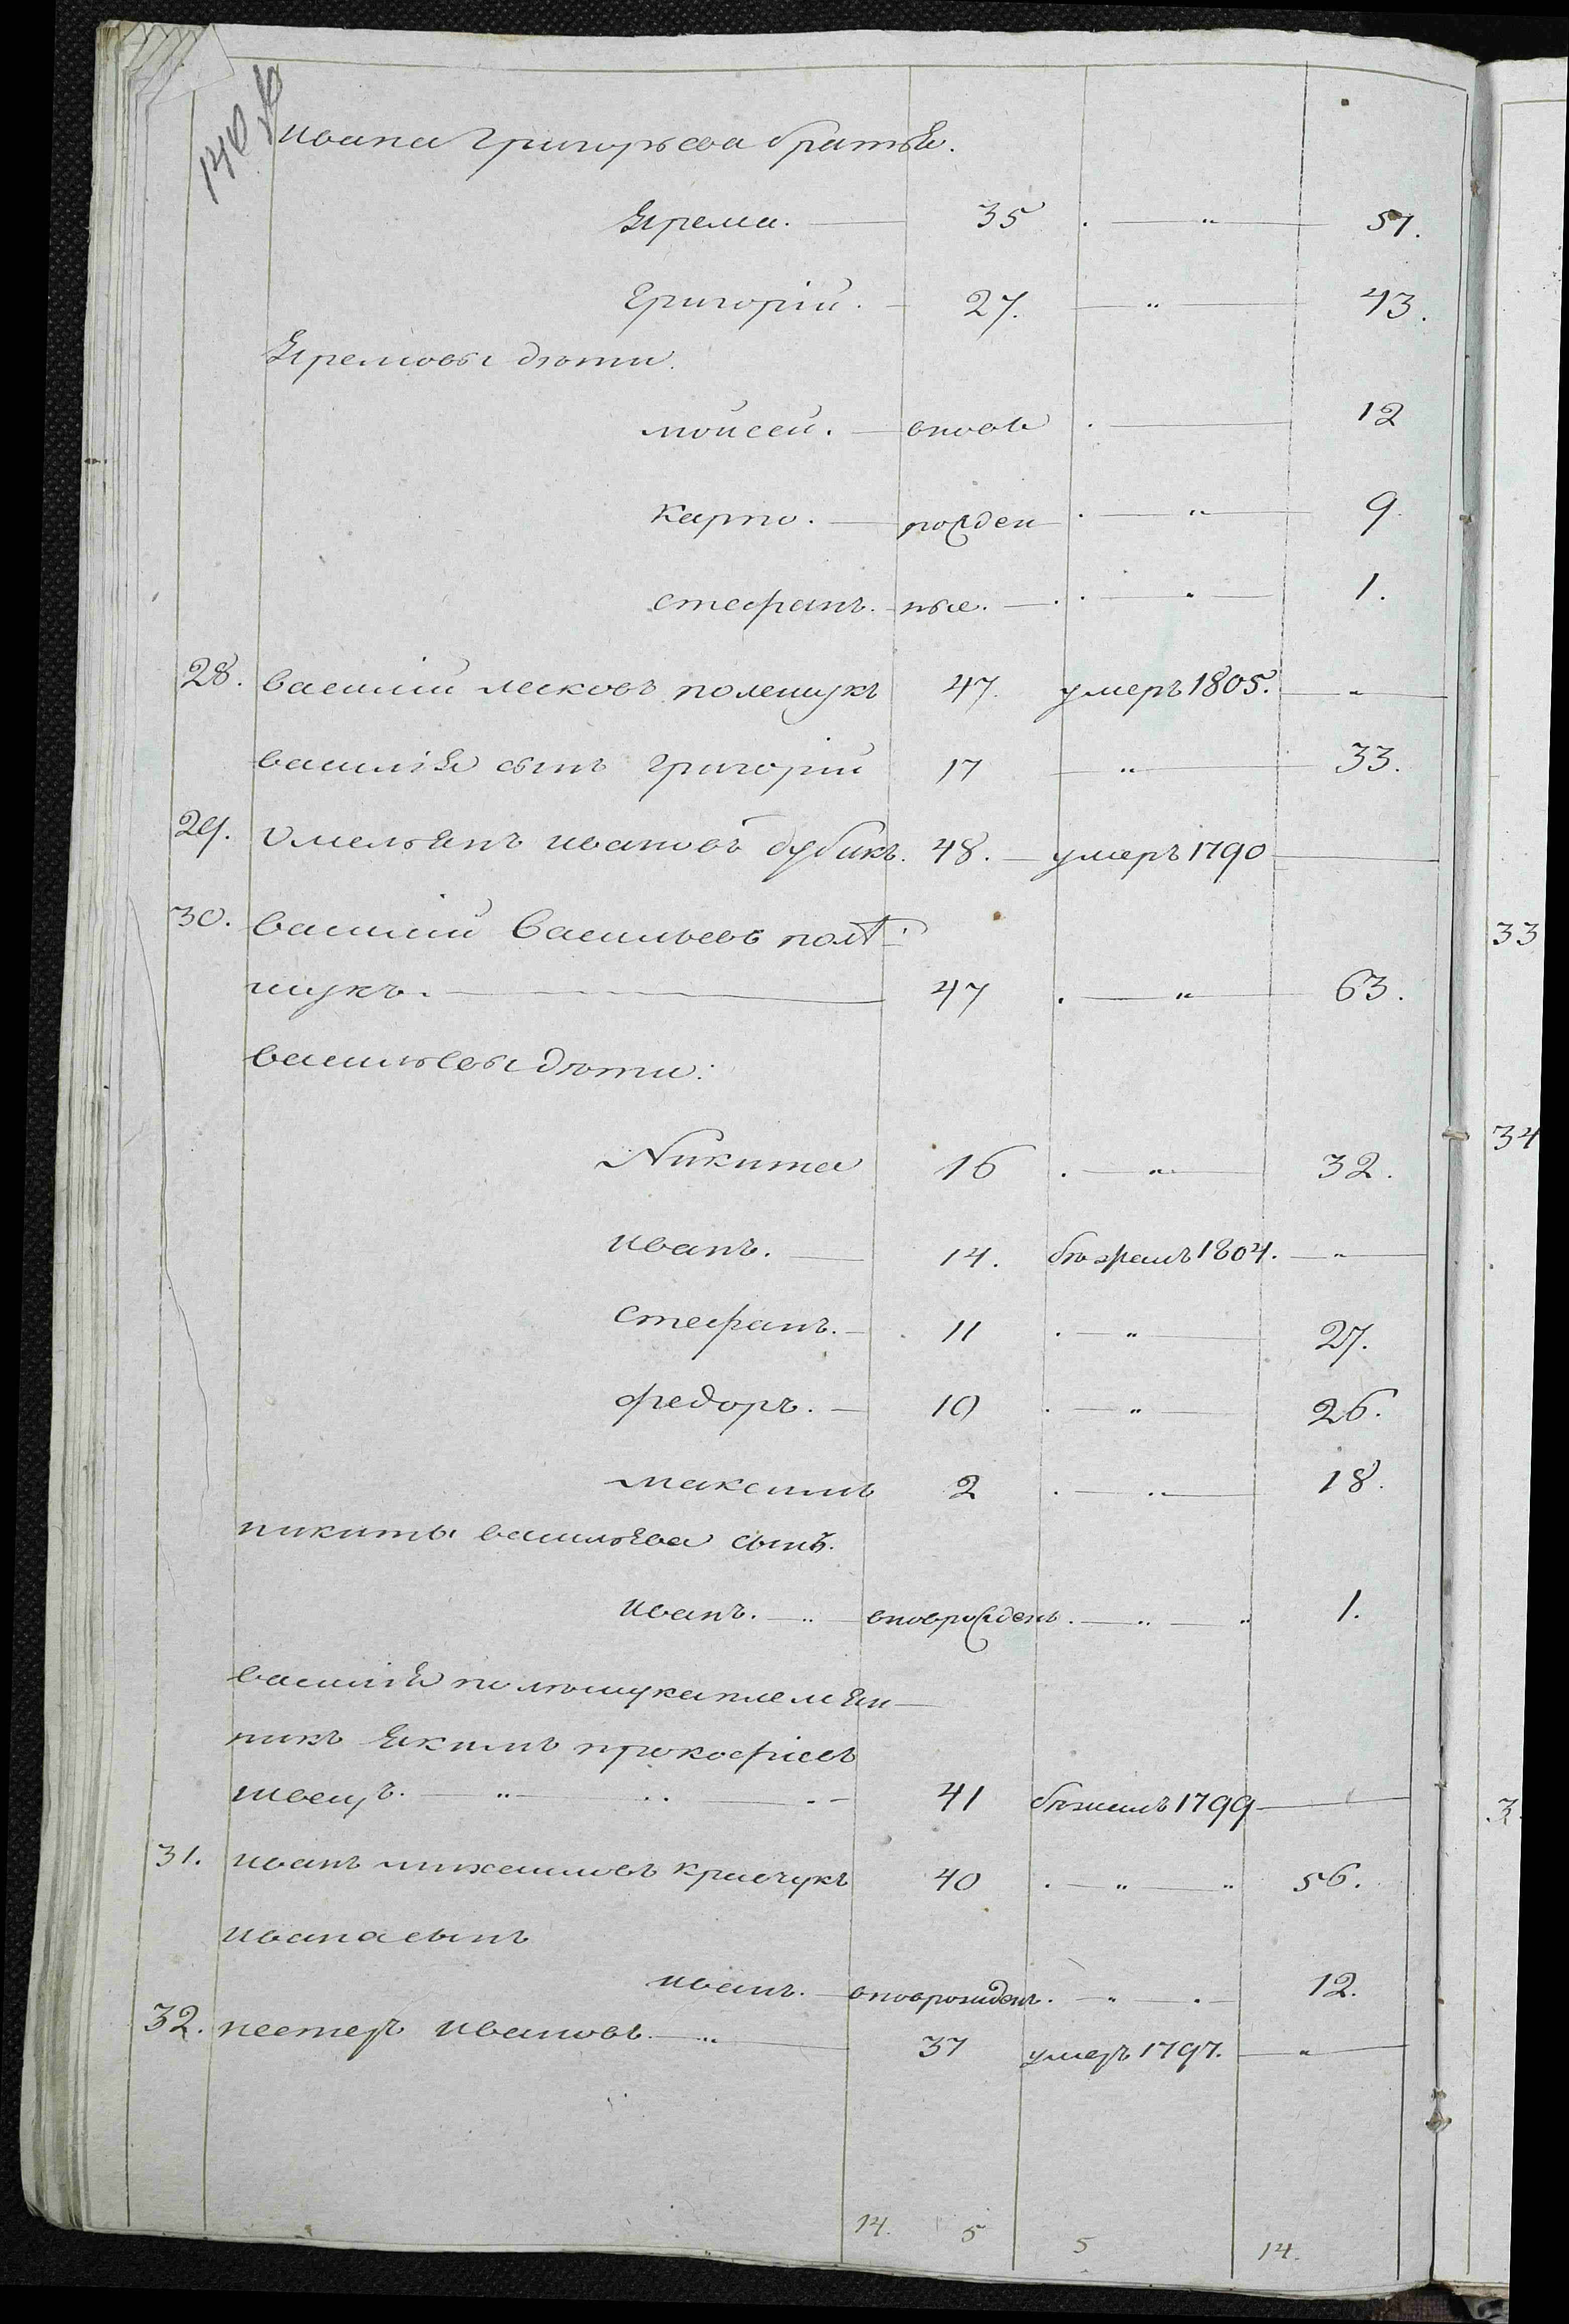 140 об
Ивана григорьева братья.
Ярема. 35 51.
Григорій. 27. 43.
Яремовы дѣти.
мойсей. вновь 12
карпо. рожден 9
стефанъ. ные. 1.
28. василій лесковъ полещукъ 47. умеръ 1805.
василія сынъ григорій 17 33.
29. Омельянъ ивановъ бубикъ. 48. умеръ 1790
30. василій Васильевъ полѣ-
щукъ. 47 63.
васильевы дѣти:
Никита 16 32.
иванъ. 14. бѣжалъ 1804.
стефанъ. 11 27.
федоръ. 10 26.
максимъ 2 18.
никиты васильева сынъ.
иванъ. вноврожденъ. 1.
василія полѣщука племян-
никъ Якимъ прокофіевъ
швецъ. 41 бѣжалъ 1799
31. иванъ михайловъ кравчукъ 40 56.
ивана сынъ
иванъ. вноврожденъ. 12.
32. нестеръ ивановъ. 37 умеръ 1797.
14. 5 5 14.
33
34
3